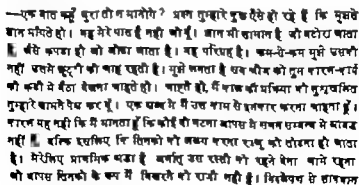 —एक बात कहूँ बुरा तो न मानोगे? प्रश्न तुम्हारे कुछ ऐसे हो रहे हैं कि मुझसे
ज्ञान माँगते हों। वह मेरे पास है नहीं जो दूँ। ज्ञान भी सामान है जो बटोरा जाता
जैसे कपड़ा हो जो ओढ़ा जाता है। वह परिग्रह है। कम-से-कम मुझे उसकी
नहीं उसमें छुट्टी की चाह रहती है। मुझे लगता है सब चीज को तुम कारण-कार्य
की कड़ी में बैठा देखना चाहते हो। चाहते हो, मैं बाक की प्रक्रिया को सुश्रृंखलित
तुम्हारे सामने पेश कर दूँ। एक शब्द में मैं उस काम से इनकार करना चाहता हूँ।
कारण यह नहीं कि मैं मानता हूँ कि कोई भी घटना आपस में सघन सम्बन्ध में आबद्ध
नहीं बल्कि इसलिए कि जिनको भी अलग करना रज्जु को तोड़ना हो जाता
है। मेरे लिए प्राथमिक श्रद्धा है अर्थात् उस रस्सी को रहने देना थामे रहना
को वापस तिनकों के रूप में बिखरने को राजी नहीं है। विश्लेषण से सावधान